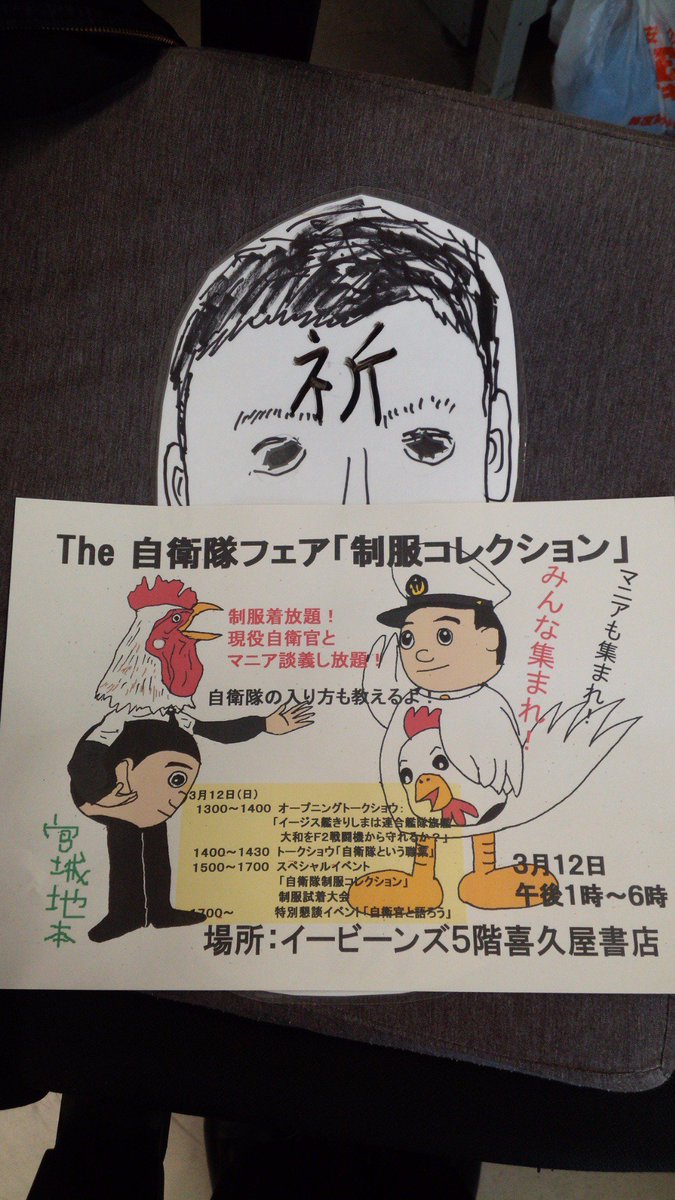 祈
The 自衛隊フェア「制服コレクション」
制服着放題！
現役自衛官と
マニア談義し放題！
マニアも集まれ！
みんな集まれ！
自衛隊の入り方も教えるよ！
3月12日(日)
1300～1400 オープニングトークショウ：
「イージス艦きりしまは連合艦隊旗艦
大和をF2戦闘機から守れるか？」
1400～1430 トークショウ「自衛隊という職業」
1500～1700 スペシャルイベント
「自衛隊制服コレクション」
制服試着大会
1700～ 特別懇談イベント「自衛官と語ろう」
宮城地本
3月12日
午後1時～6時
場所：イービーンズ5階喜久屋書店